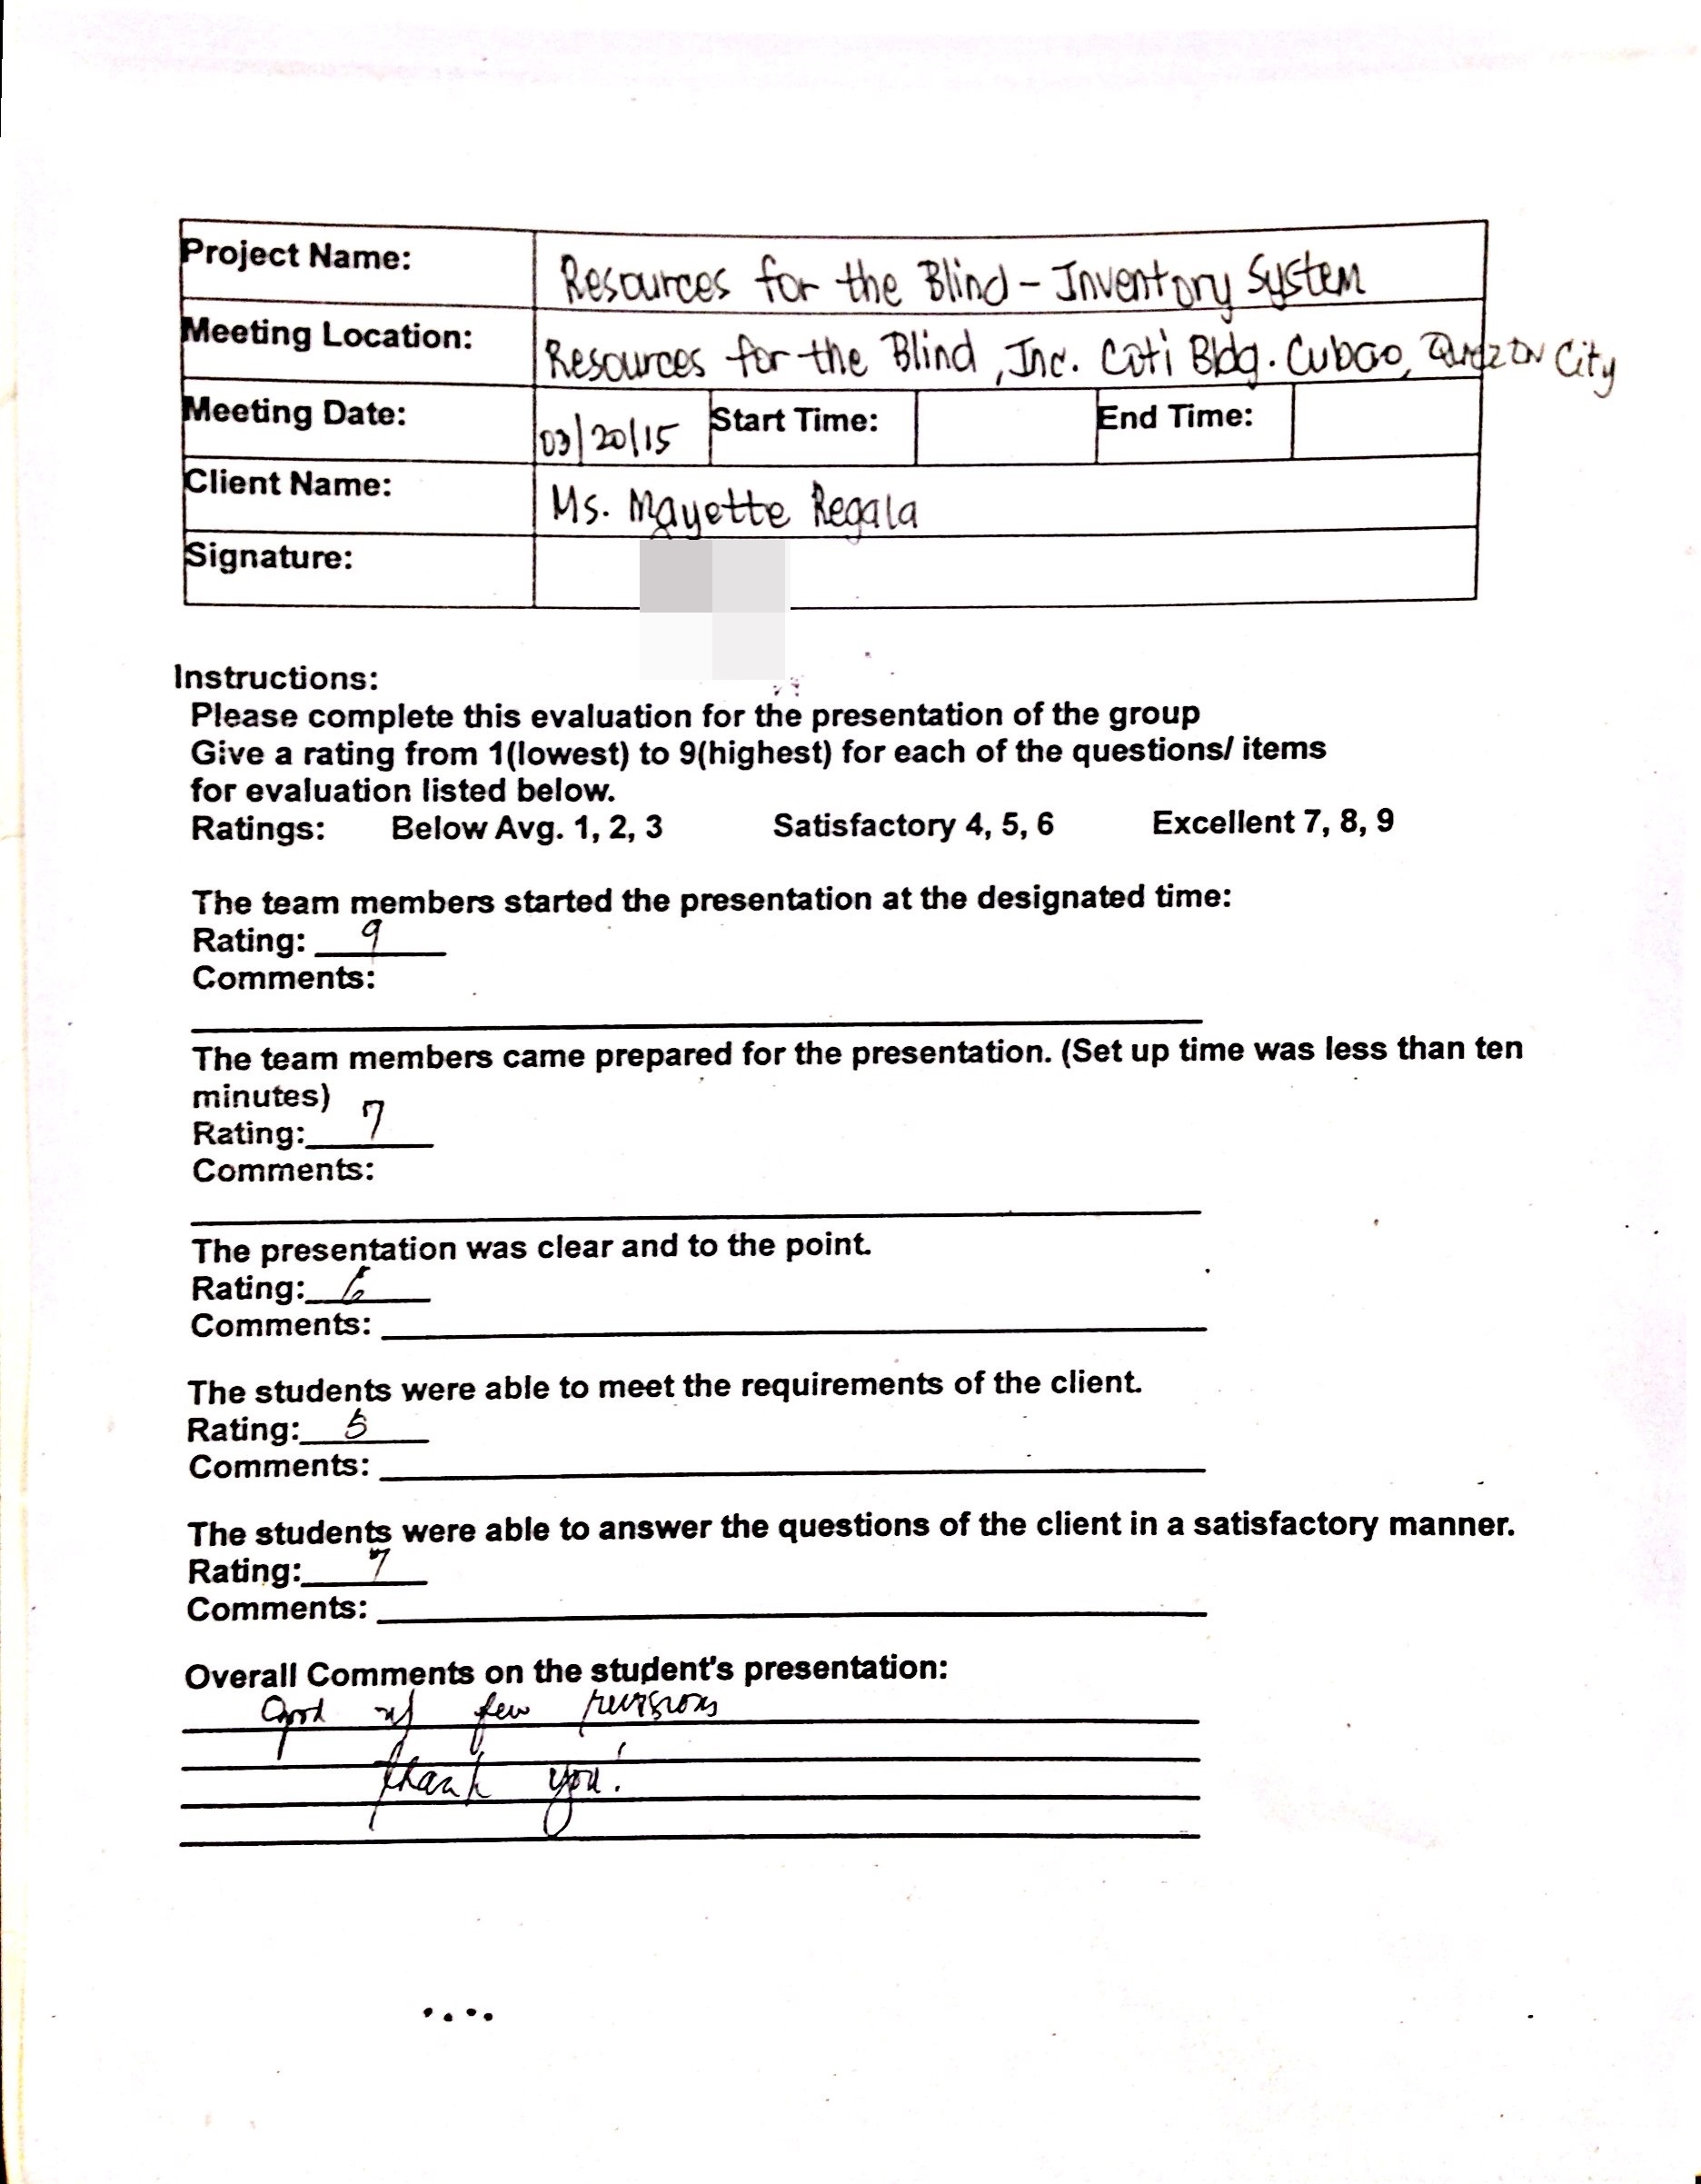 Project Name: Resources for the Blind - Inventory System
Meeting Location: Resources for the Blind, Inc. Citi Bldg. Cubao, Quezon City
Meeting Date: 03/20/15 Start Time: End Time:
Client Name: Ms. Mayette Regala
Signature:
Instructions:
Please complete this evaluation for the presentation of the group
Give a rating from 1(lowest) to 9(highest) for each of the questions/ items
for evaluation listed below.
Ratings: Below Avg. 1, 2, 3 Satisfactory 4, 5, 6 Excellent 7, 8, 9
The team members started the presentation at the designated time:
Rating: 9
Comments:
The team members came prepared for the presentation. (Set up time was less than ten
minutes)
Rating: 7
Comments:
The presentation was clear and to the point.
Rating: 6
Comments:
The students were able to meet the requirements of the client.
Rating: 5
Comments:
The students were able to answer the questions of the client in a satisfactory manner.
Rating: 7
Comments:
Overall Comments on the student's presentation:
Good w/ few revisions
thank you!